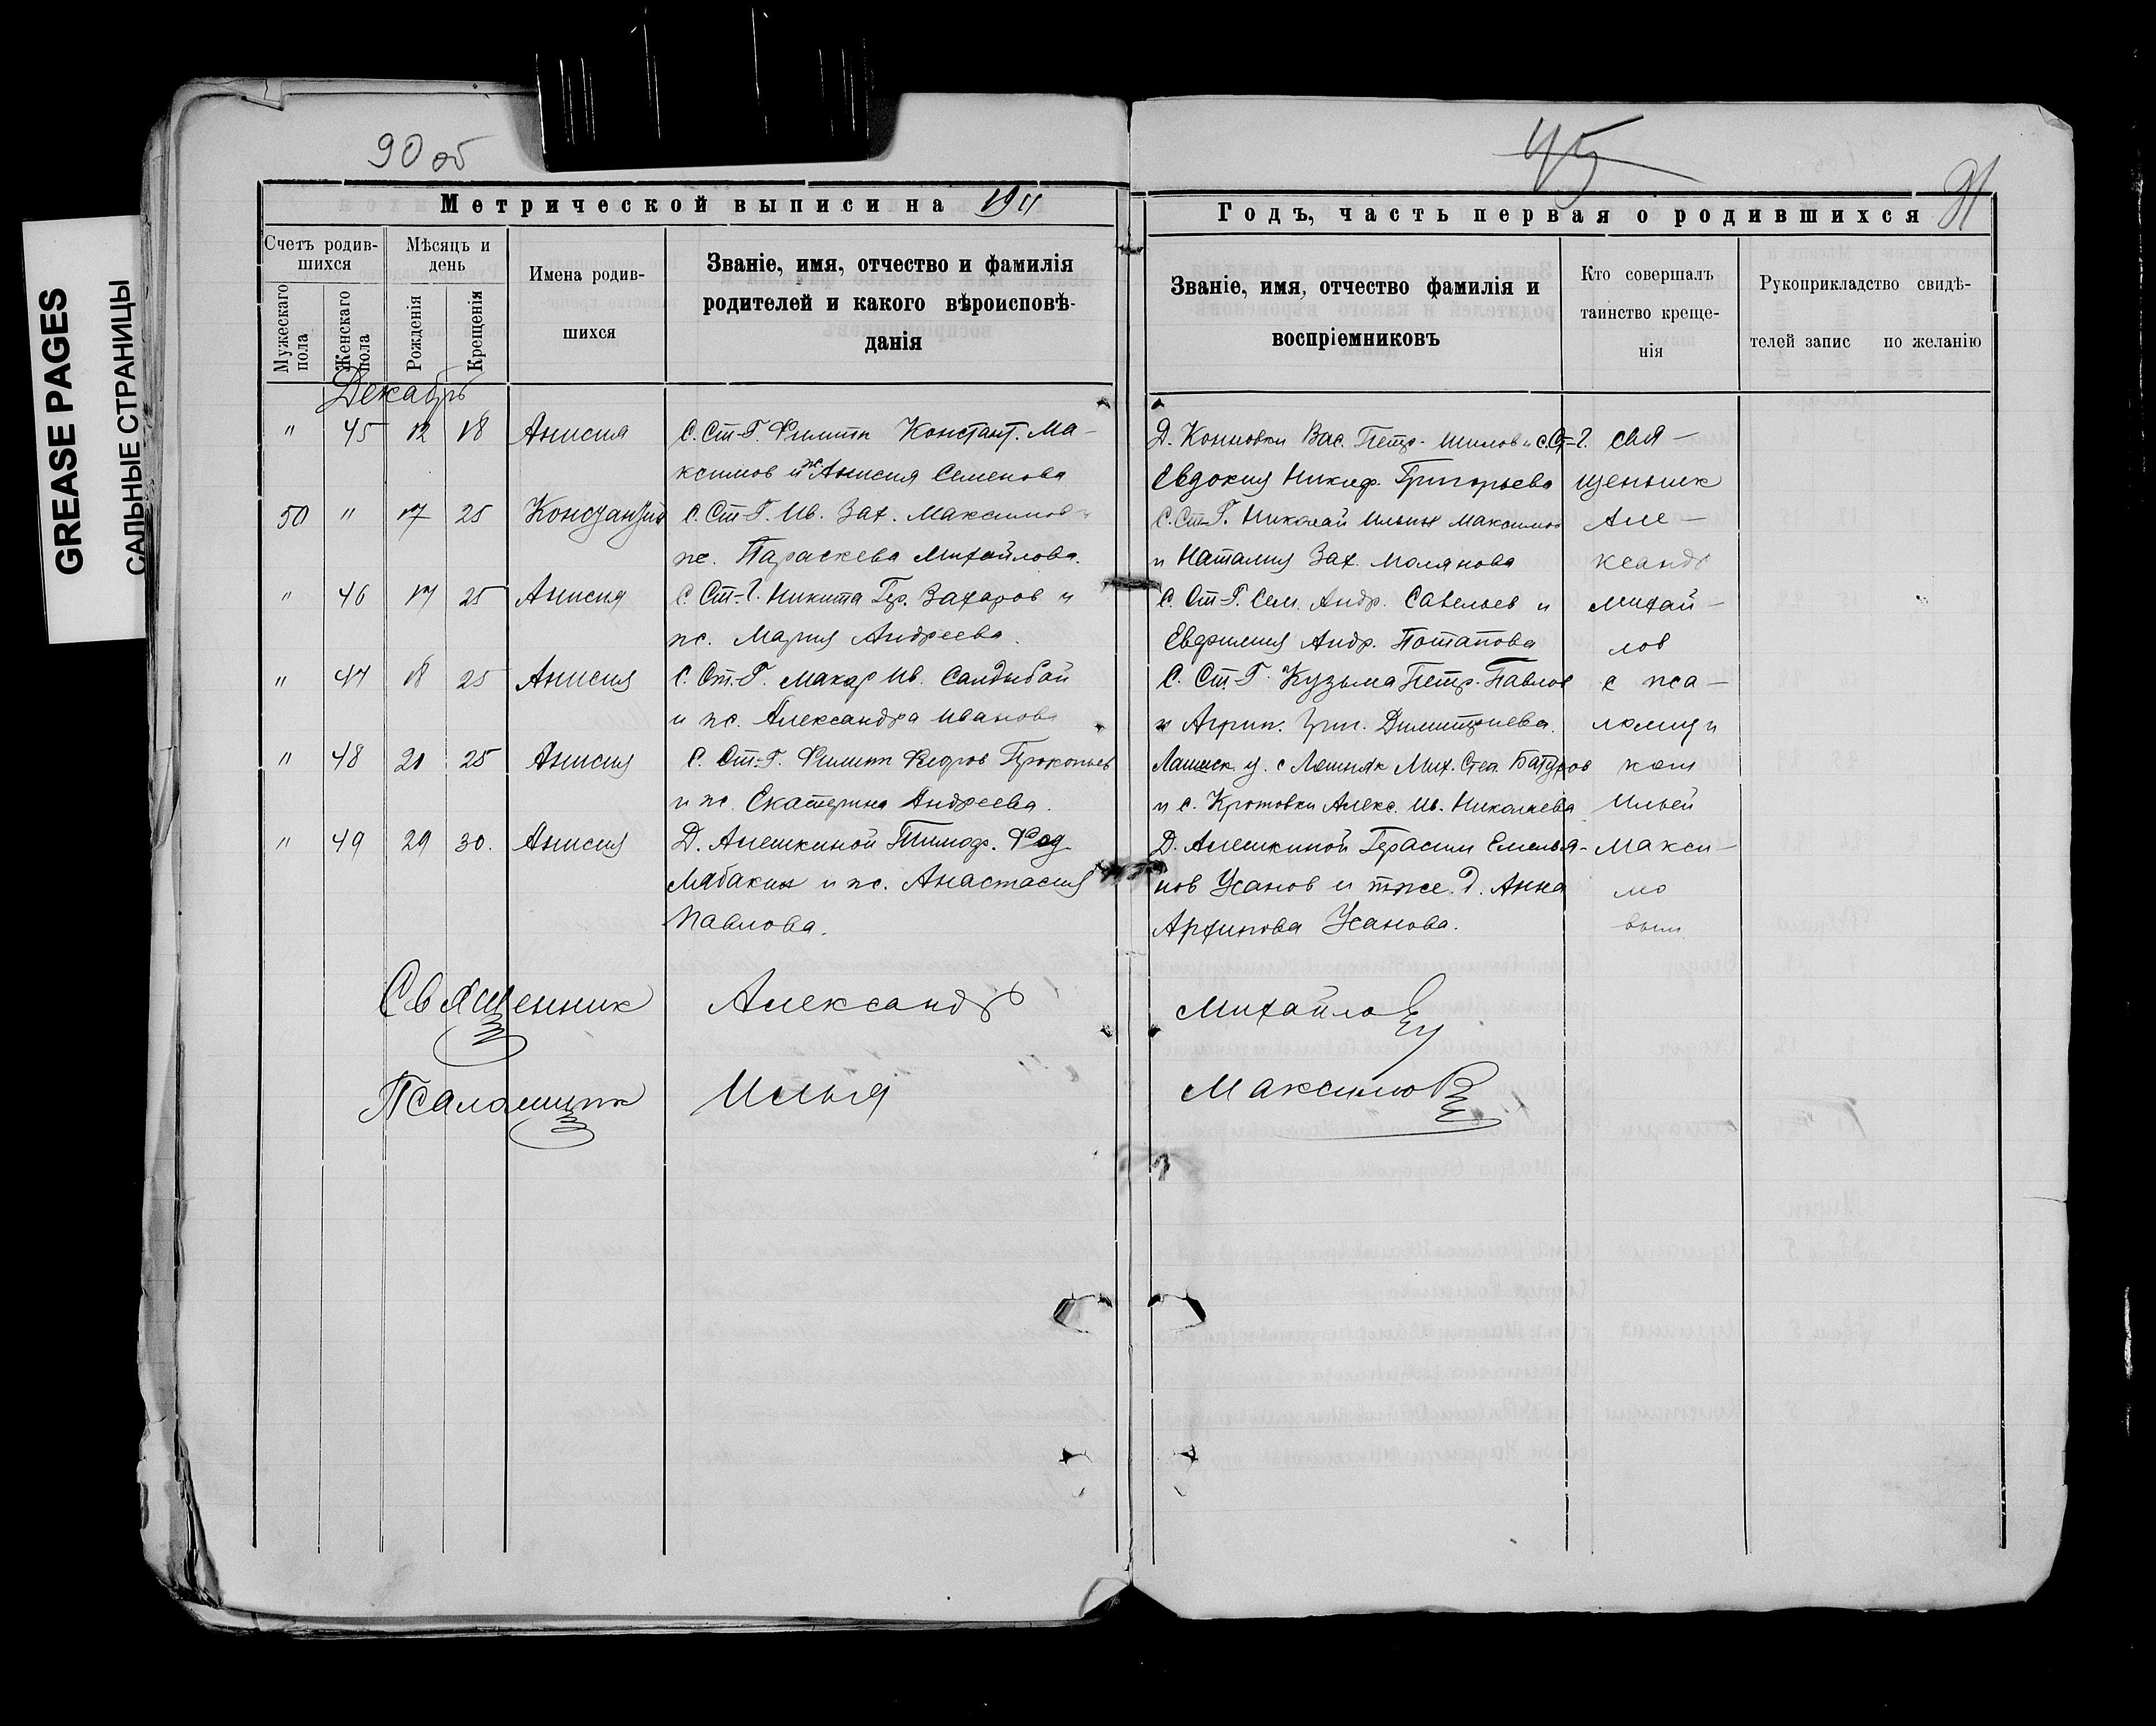 GREASE PAGES
САЛЬНЫЕ СТРАНИЦЫ
90 об
Метрической выписи на 1911
Счетъ родив-
шихся
Мѣсяцъ и
день
Имена родив-
шихся
Званіе, имя, отчество и фамилія
родителей и какого вѣроисповѣ-
данія
Мужескаго
пола
Женскаго
пола
Рожденія
Крещенія
Декабрь
" 45 12 18 Анисия С. Ст-Г. Филипп Констант. Ма-
ксимов и ж. Анисия Семенова
50 " 17 25 Константин С. Ст-Г. Ив. Зах. Максимов и
ж. Параскева Михайлова.
" 46 17 25 Анисия С. Ст-Г. Никита Гр. Захаров и
ж. Мария Андреева.
" 47 18 25 Анисия С. Ст-Г. Макар Ив. Салдыбай
и ж. Александра Иванова
" 48 20 25 Анисия С. Ст-Г. Филипп Федоров Прокопьев
и ж. Екатерина Андреева.
" 49 29 30. Анисия Д. Алешкиной Тимоф. Фед.
Лябакин и ж. Анастасия
Павлова.
Священник Александр
Псаломщик Илья
45
91
Годъ, часть первая о родившихся
Званіе, имя, отчество фамилія и
воспріемниковъ
Кто совершалъ
таинство креще-
нія
Рукоприкладство свидѣ-
телей запис по желанію
Д. Конновки Вас. Петр. Шилов и с. Ст-Г. Свя-
Евдокия Никиф. Григорьева щенник
С. Ст-Г. Николай Ильин Максимов Але-
и Наталия Зах. Молянова ксандр
С. Ст-Г. Сем. Андр. Савельев и Михай-
Евфимия Андр. Потапова лов
С. Ст-Г. Кузьма Петр. Павлов с пса-
и Агрип. Григ. Димитриева. ломщи
Лаишск. у. с Мих. Степ. Батуров ком
и с. Кротовки Алекс. Ив. Николаева Ильей
Д. Алешкиной Герасим Емелья- Макси-
нов Усанов и тже. д. Анна мо
Архипова Усанова. вым
Михайлов
Максимов